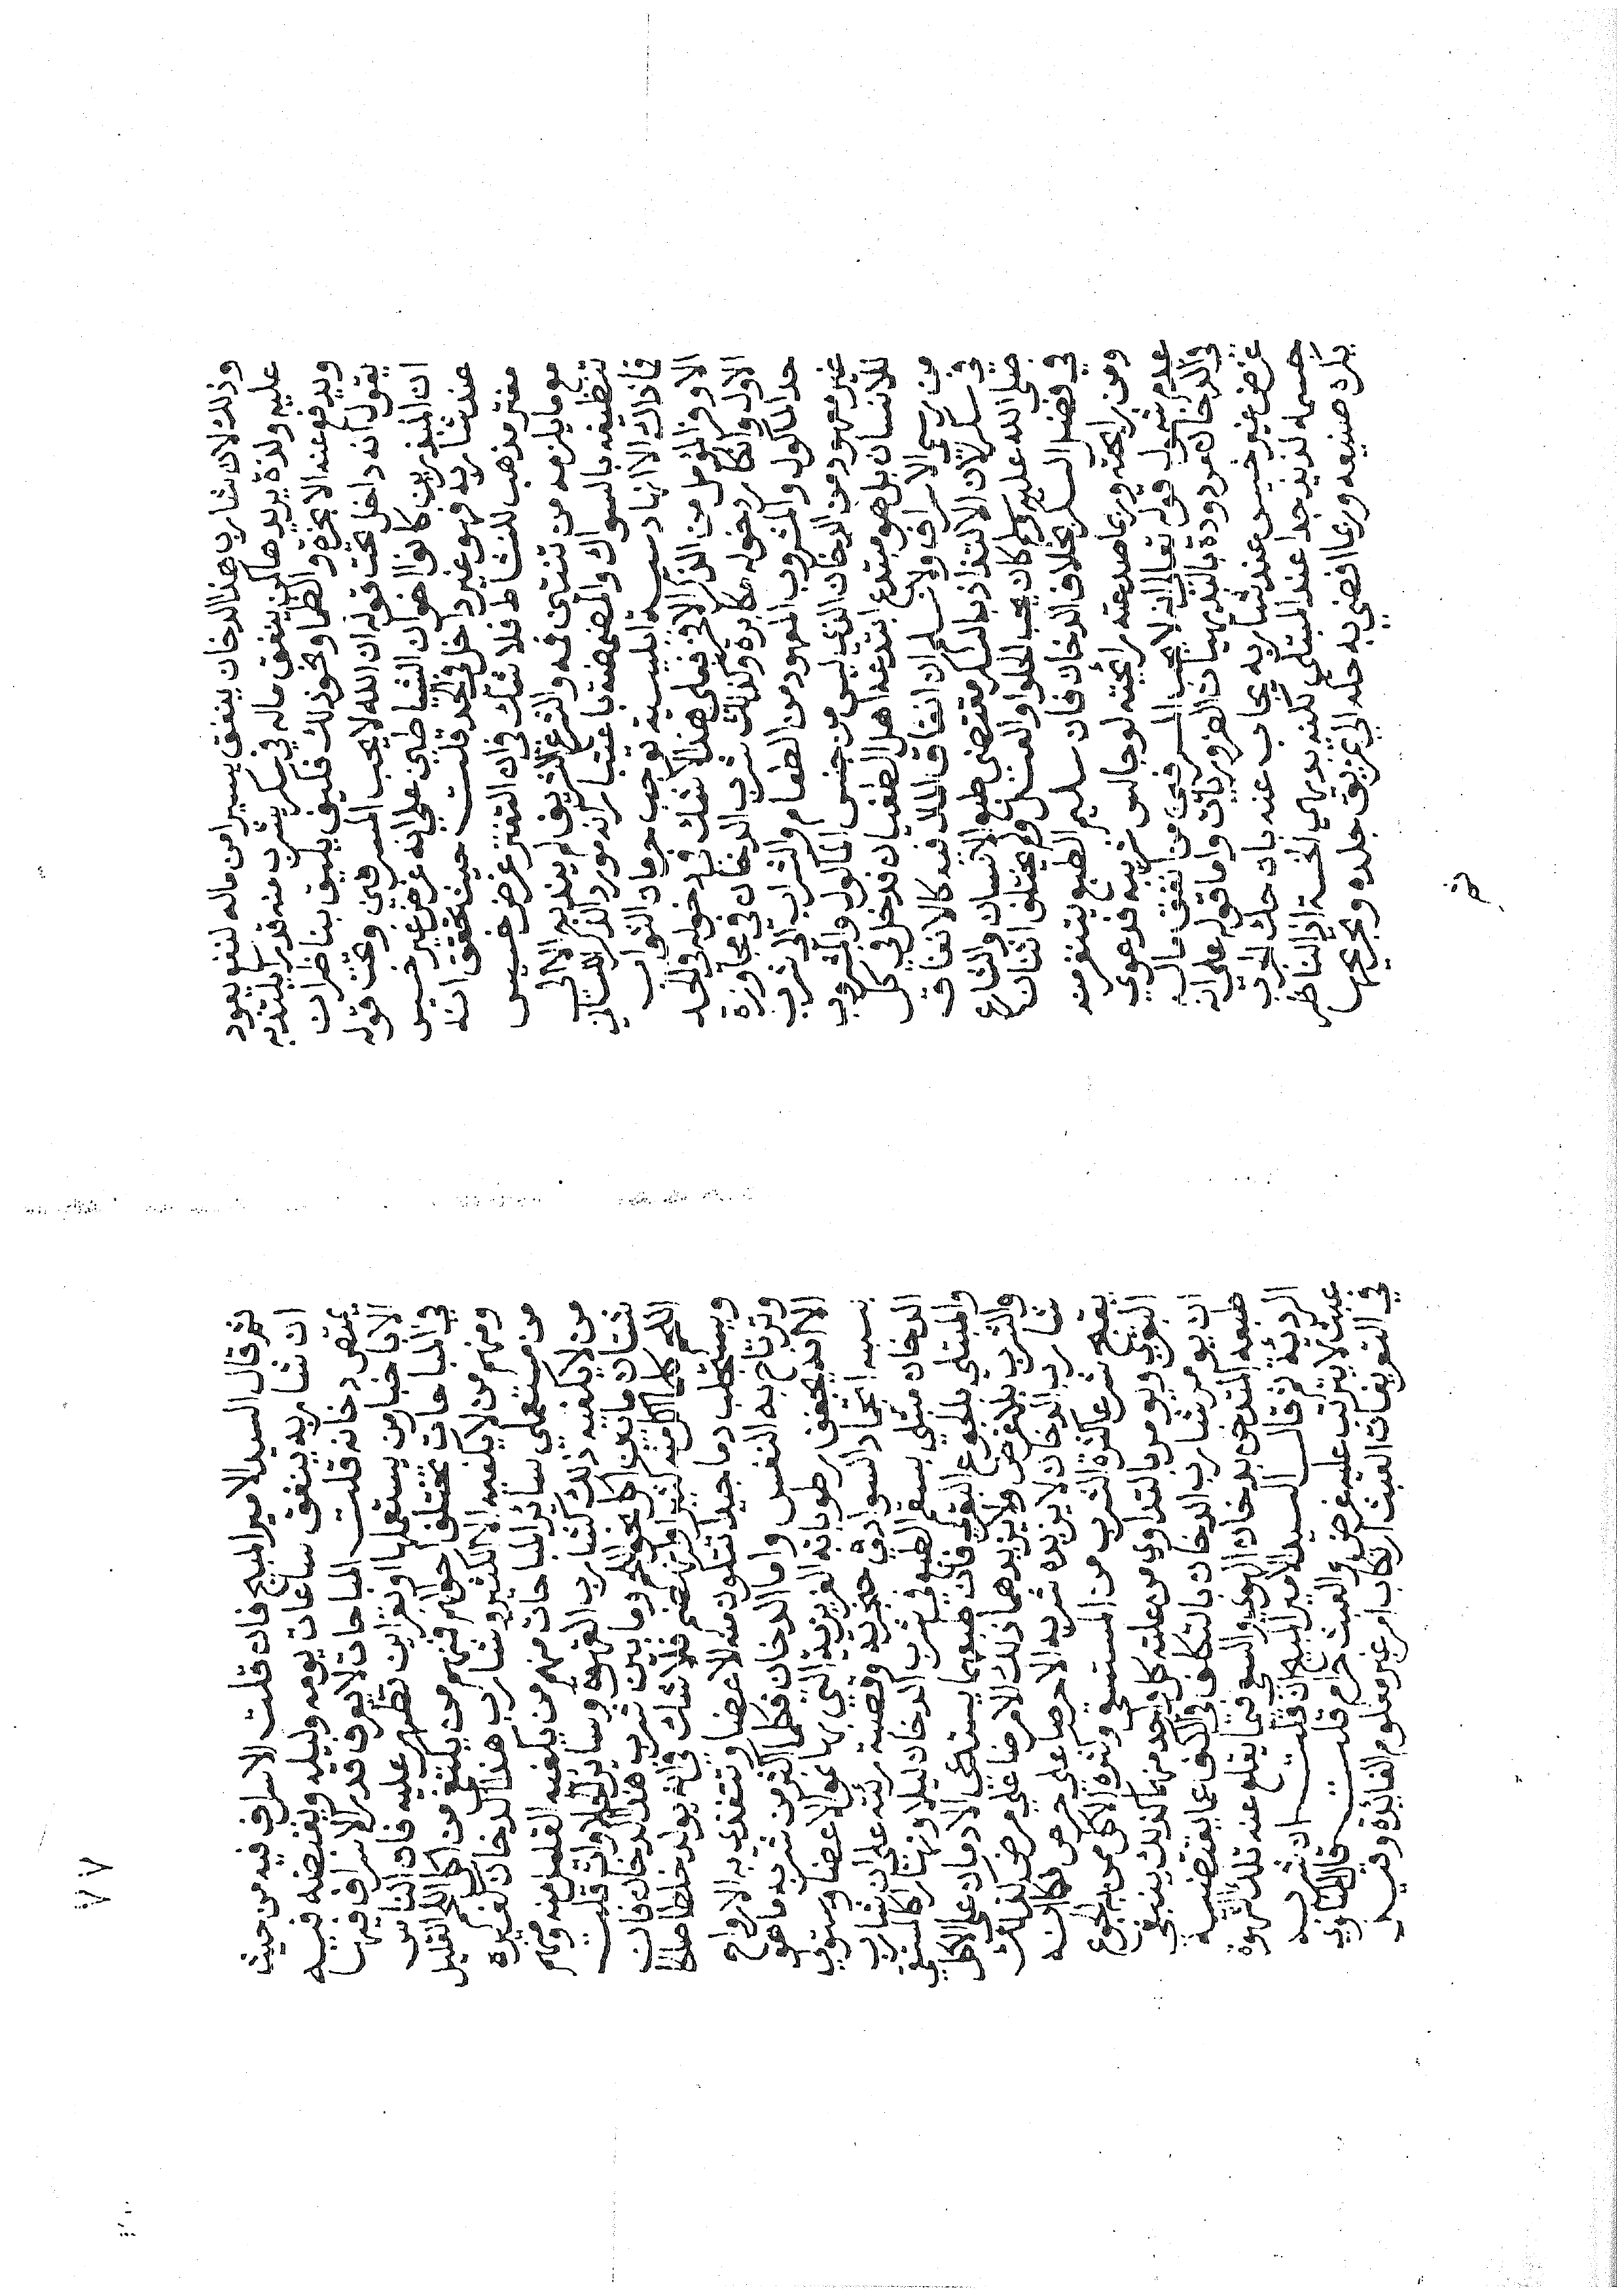 وذلك لان شارب هذا الدخان ينفق يسيرا من ماله لنفع يعود
عليه ولذة يريدها كمن ينفق ماله في سكر يشرب منه قدرا يلتذ به
ويدفع عنه الابخرة والظما ونحو ذلك فكيف يليق بناظر ان
يقول انه داخل تحت قوله ان الله لا يحب المسرفين وتحت قوله
ان المبذرين كانوا اخوان الشياطين على انه غرض غير خسيس
عند شاربه فهو غير داخل في الحد قلت حيث تحقق انه
مفتر مذهب للنشاط فلا شك في ان التفتير غرض خسيس
مع ما يلزمه من تنتين فمه والشرع الشريف لم يندب الا الى
تنظيفه بالسواك والمضمضة باعتبار انه مورد الذكر اللساني
فاذاك الا انها دسيسة ابليسية توجب حرمان الثواب
الاوفر المؤمل من الذكر الاكثر فعلى هذا لا شك في دخوله في الحد
الاول وانكار دخوله مكابرة وكذلك شرب الدخان في مجاوزة
حد الماكول والمشروب المعهود من الطعام والشراب الى شرب
غير معهود من الدخان الذي ليس من جنس الماكول والمشروب
للانسان بل هو مبتدع ابتدعه اهل الطغيان فدخل في كل
من رسمي الاسراف ولا نسلم ان انفاق المال فيه كالانفاق
في سكر لان الالتذاذ بالسكر مقتضى طبع الانسان والشارع
صلى الله عليه وسلم كان يحب الحلوا والعسل ولم يختلف اثنان
في فضل السكر بخلاف الدخان فان سليم الطبع يتنفر منه
ومن رايحته وربما صدعته رائحته لو جالس شريبه فدعوى
عدم شمول قوله تعالى انه لا يحب المسرفين من انفق ماله
في الدخان مردودة بالبديهيات الضروريات واما قوله على انه
غرض غير خسيس عند شاربه يجاب عنه بان حك الجرب
جسمه لذيذ جدا عند المبتلى لكنه بديهي الخسة اذ الناظر
يكره صنيعه وربما افضى به حكه الى تمزيق جلده وتجريحها
ثم
٧٧
ثم قال السيد الامير المبيح فان قلت الاسراف فيه من حيث
ان شاربه ينفق ساعات يومه وليله فيه
بمص دخانه قلت المباحات لا يعرف قدر الاسراف فيها
الا باخبار من يستعملها او بقراين تظهر عليه فان الناس
في المباحات تختلف احوالهم فمنهم من يكتفي من اكل اللحم القليل
ومنهم من لا يكفيه الا الكثير وشارب هذا الدخان كغيره
من مستعملي سائر المباحات منهم من يكفيه القليل منه ومنهم
من لا يكفيه ذلك كشارب القهوة وسائر الحلاوات قلت
شتان ما بين اكل نحو اللحم وما بين شرب هذا الدخان فان
اللحم كلما اكل منه كثيرا وانهضم فلا شك في انه يولد خلطا صالحا
ويستجلب دما جيدا تتكون منه الاعضا وتتغذى به الارواح
وترتاح به النفس واما الدخان فكلما اكثر من شربه ما هو
الا انه يجفف رطوباته الغريزية التي بها نمو الاعضا ويستولي
بسببه انجماد السواد في حنجرته وقصبة رئته على ان شارب
الدخان مبتلى بسقم الطبع في شرب الدخان ليلا ونهارا كالمستسقي
والمبتلى بالجوع البقري فان طبعهما يستدعي الادمان على الاكل
والشرب بلا غرض ولا يزيدهما ذلك الا مرضا على مرض كذلك
شارب الدخان لا يزيده شربه الا حرصا على حرص فكما انه
يقبح شرعا كثرة الشرب من المستسقي وكثرة الاكل من به الجوع
البقري ويؤمر بالتداوي من علته كل واحد منهما كذلك ينبغي
ان يؤمر شارب الدخان بالتكلف في الكف عما يقتضيه
طبعه المتدخن بدخان الهوى والسعي فيما يقلع عنه تلك الشهوة
الردية ثم قال السيد الامير المبيح ان قلت ان شربه
عبث لا يترتب عليه غرض والعبث حرام قلت قال المناوي
في التعريفات العبث ارتكاب امر غير معلوم الفائدة وفيه